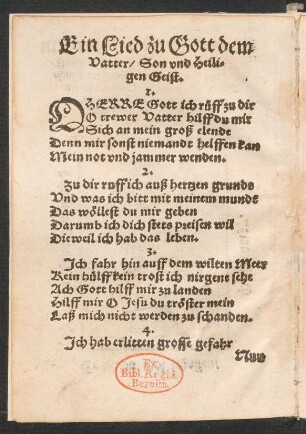 Ein Lied zu Gott dem
Vatter/ Son vnd Heili-
gen Geist.
1.
O HERRE Gott ich rüff zu dir
O trewer Vatter hilff du mir
Sich an mein groß elende
Denn mir sonst niemandt helffen kan
Mein not vnd jammer wenden.
2.
Zu dir ruff ich auß hertzen grunde
Vnd was ich bitt mit meinem mundt
Das wöllest du mir geben
Darumb ich dich stets preisen wil
Dieweil ich hab das leben.
3.
Ich fahr hin auff dem wilten Meer
Kein hülff kein trost ich nirgent sehe
Ach Gott hilff mir zu landen
Hilff mir O Jesu du tröster mein
Laß mich nicht werden zu schanden.
4.
Ich hab erlitten grosse gefahr
Nun
Ex
Bibl. Regia
Berolin.